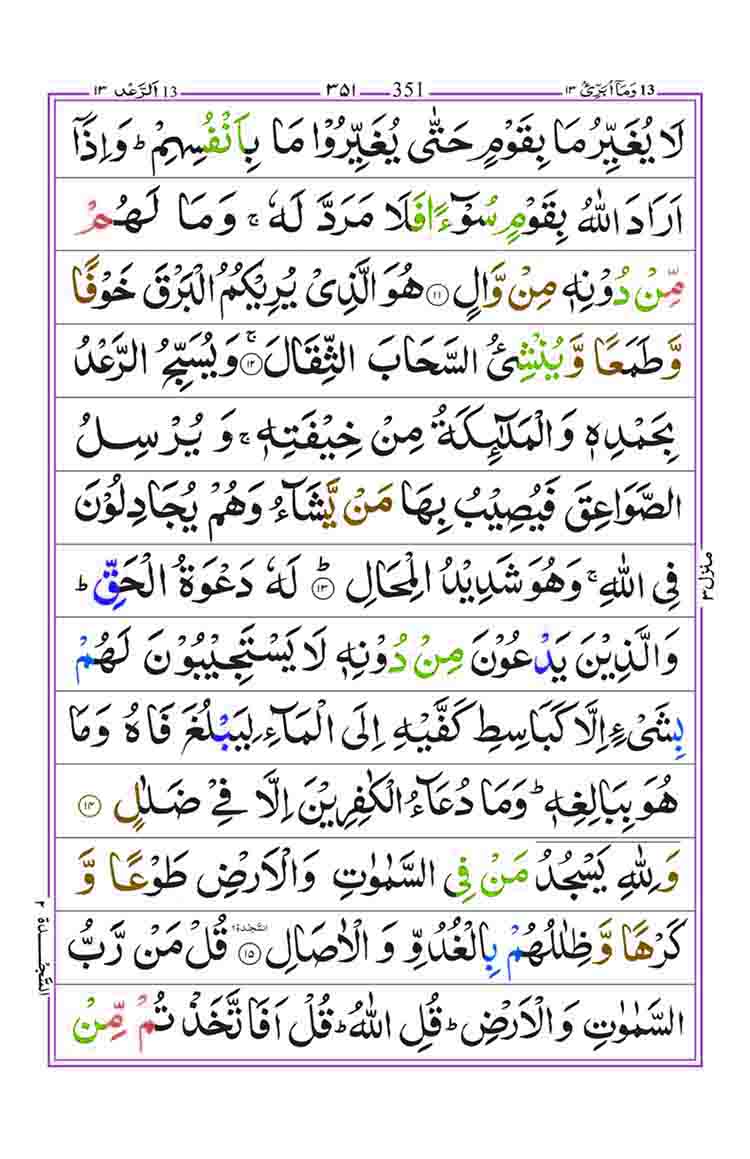 13 وَمَآ اُبَرِّئُ ۱۳ 351 ۳۵۱ 13 اَلرَّعْد ۱۳
لَا يُغَيِّرُ مَا بِقَوْمٍ حَتّٰى يُغَيِّرُوْا مَا بِاَنْفُسِهِمْ ؕ وَاِذَاۤ
اَرَادَ اللّٰهُ بِقَوْمٍ سُوْٓءًا فَلَا مَرَدَّ لَهٗ ۚ وَمَا لَهُمْ
مِّنْ دُوْنِهٖ مِنْ وَّالٍ ۝۱۱ هُوَ الَّذِىْ يُرِيْكُمُ الْبَرْقَ خَوْفًا
وَّطَمَعًا وَّيُنْشِئُ السَّحَابَ الثِّقَالَ ۝۱۲ ۚ وَيُسَبِّحُ الرَّعْدُ
بِحَمْدِهٖ وَالْمَلٰٓئِكَةُ مِنْ خِيْفَتِهٖ ۚ وَيُرْسِلُ
الصَّوَاعِقَ فَيُصِيْبُ بِهَا مَنْ يَّشَآءُ وَهُمْ يُجَادِلُوْنَ
فِى اللّٰهِ ۚ وَهُوَ شَدِيْدُ الْمِحَالِ ۝۱۳ ؕ لَهٗ دَعْوَةُ الْحَقِّ ؕ
وَالَّذِيْنَ يَدْعُوْنَ مِنْ دُوْنِهٖ لَا يَسْتَجِيْبُوْنَ لَهُمْ
بِشَىْءٍ اِلَّا كَبَاسِطِ كَفَّيْهِ اِلَى الْمَآءِ لِيَبْلُغَ فَاهُ وَمَا
هُوَ بِبَالِغِهٖ ؕ وَمَا دُعَآءُ الْكٰفِرِيْنَ اِلَّا فِىْ ضَلٰلٍ ۝۱۴
وَلِلّٰهِ يَسْجُدُ مَنْ فِى السَّمٰوٰتِ وَالْاَرْضِ طَوْعًا وَّ
كَرْهًا وَّظِلٰلُهُمْ بِالْغُدُوِّ وَالْاٰصَالِ ۝۱۵ السَّجْدَة قُلْ مَنْ رَّبُّ
السَّمٰوٰتِ وَالْاَرْضِ ؕ قُلِ اللّٰهُ ؕ قُلْ اَفَاتَّخَذْتُمْ مِّنْ
منزل ۳
السَّجْدَة ۲